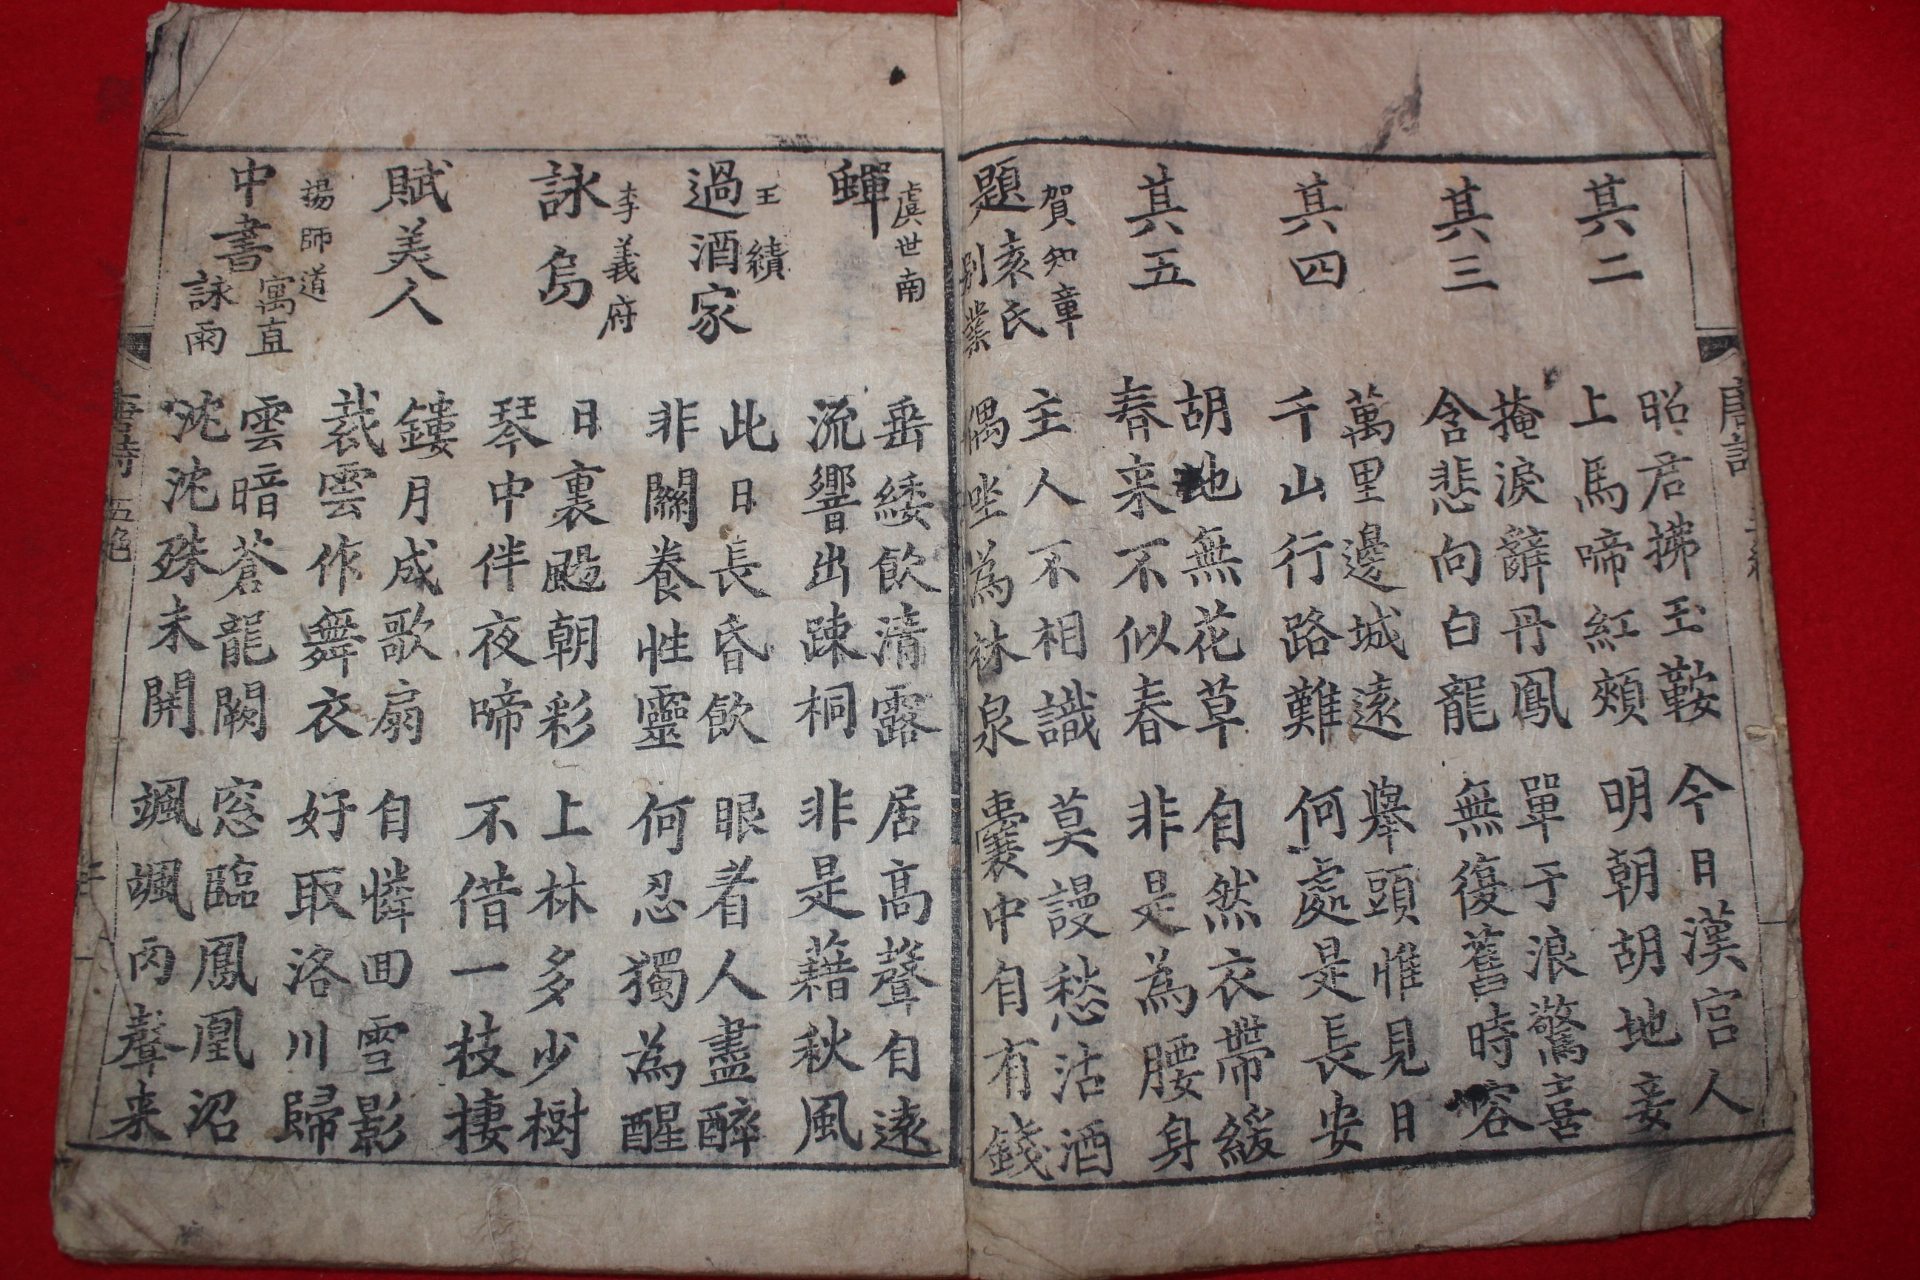 其二
昭君拂玉鞍
今日漢宮人
上馬啼紅頰
明朝胡地妾
其三
掩淚辭丹鳳
單于浪驚喜
含悲向白龍
無復舊時容
其四
萬里邊城遠
舉頭惟見日
千山行路難
何處是長安
其五
胡地無花草
自然衣帶緩
春來不似春
非是為腰身
賀知章
題袁氏別業
主人不相識
莫謾愁沽酒
偶坐為林泉
囊中自有錢
虞世南
蟬
垂緌飲清露
居高聲自遠
流響出疎桐
非是藉秋風
王績
過酒家
此日長昏飲
眼看人盡醉
非關養性靈
何忍獨為醒
李義府
詠烏
日裏颺朝彩
上林多少樹
琴中伴夜啼
不借一枝棲
賦美人
鏤月成歌扇
自憐回雪影
裁雲作舞衣
好取洛川歸
楊師道
中書寓直詠雨
雲暗蒼龍闕
窓臨鳳凰沼
沈沈殊未開
颯颯雨聲来
唐詩 五絶